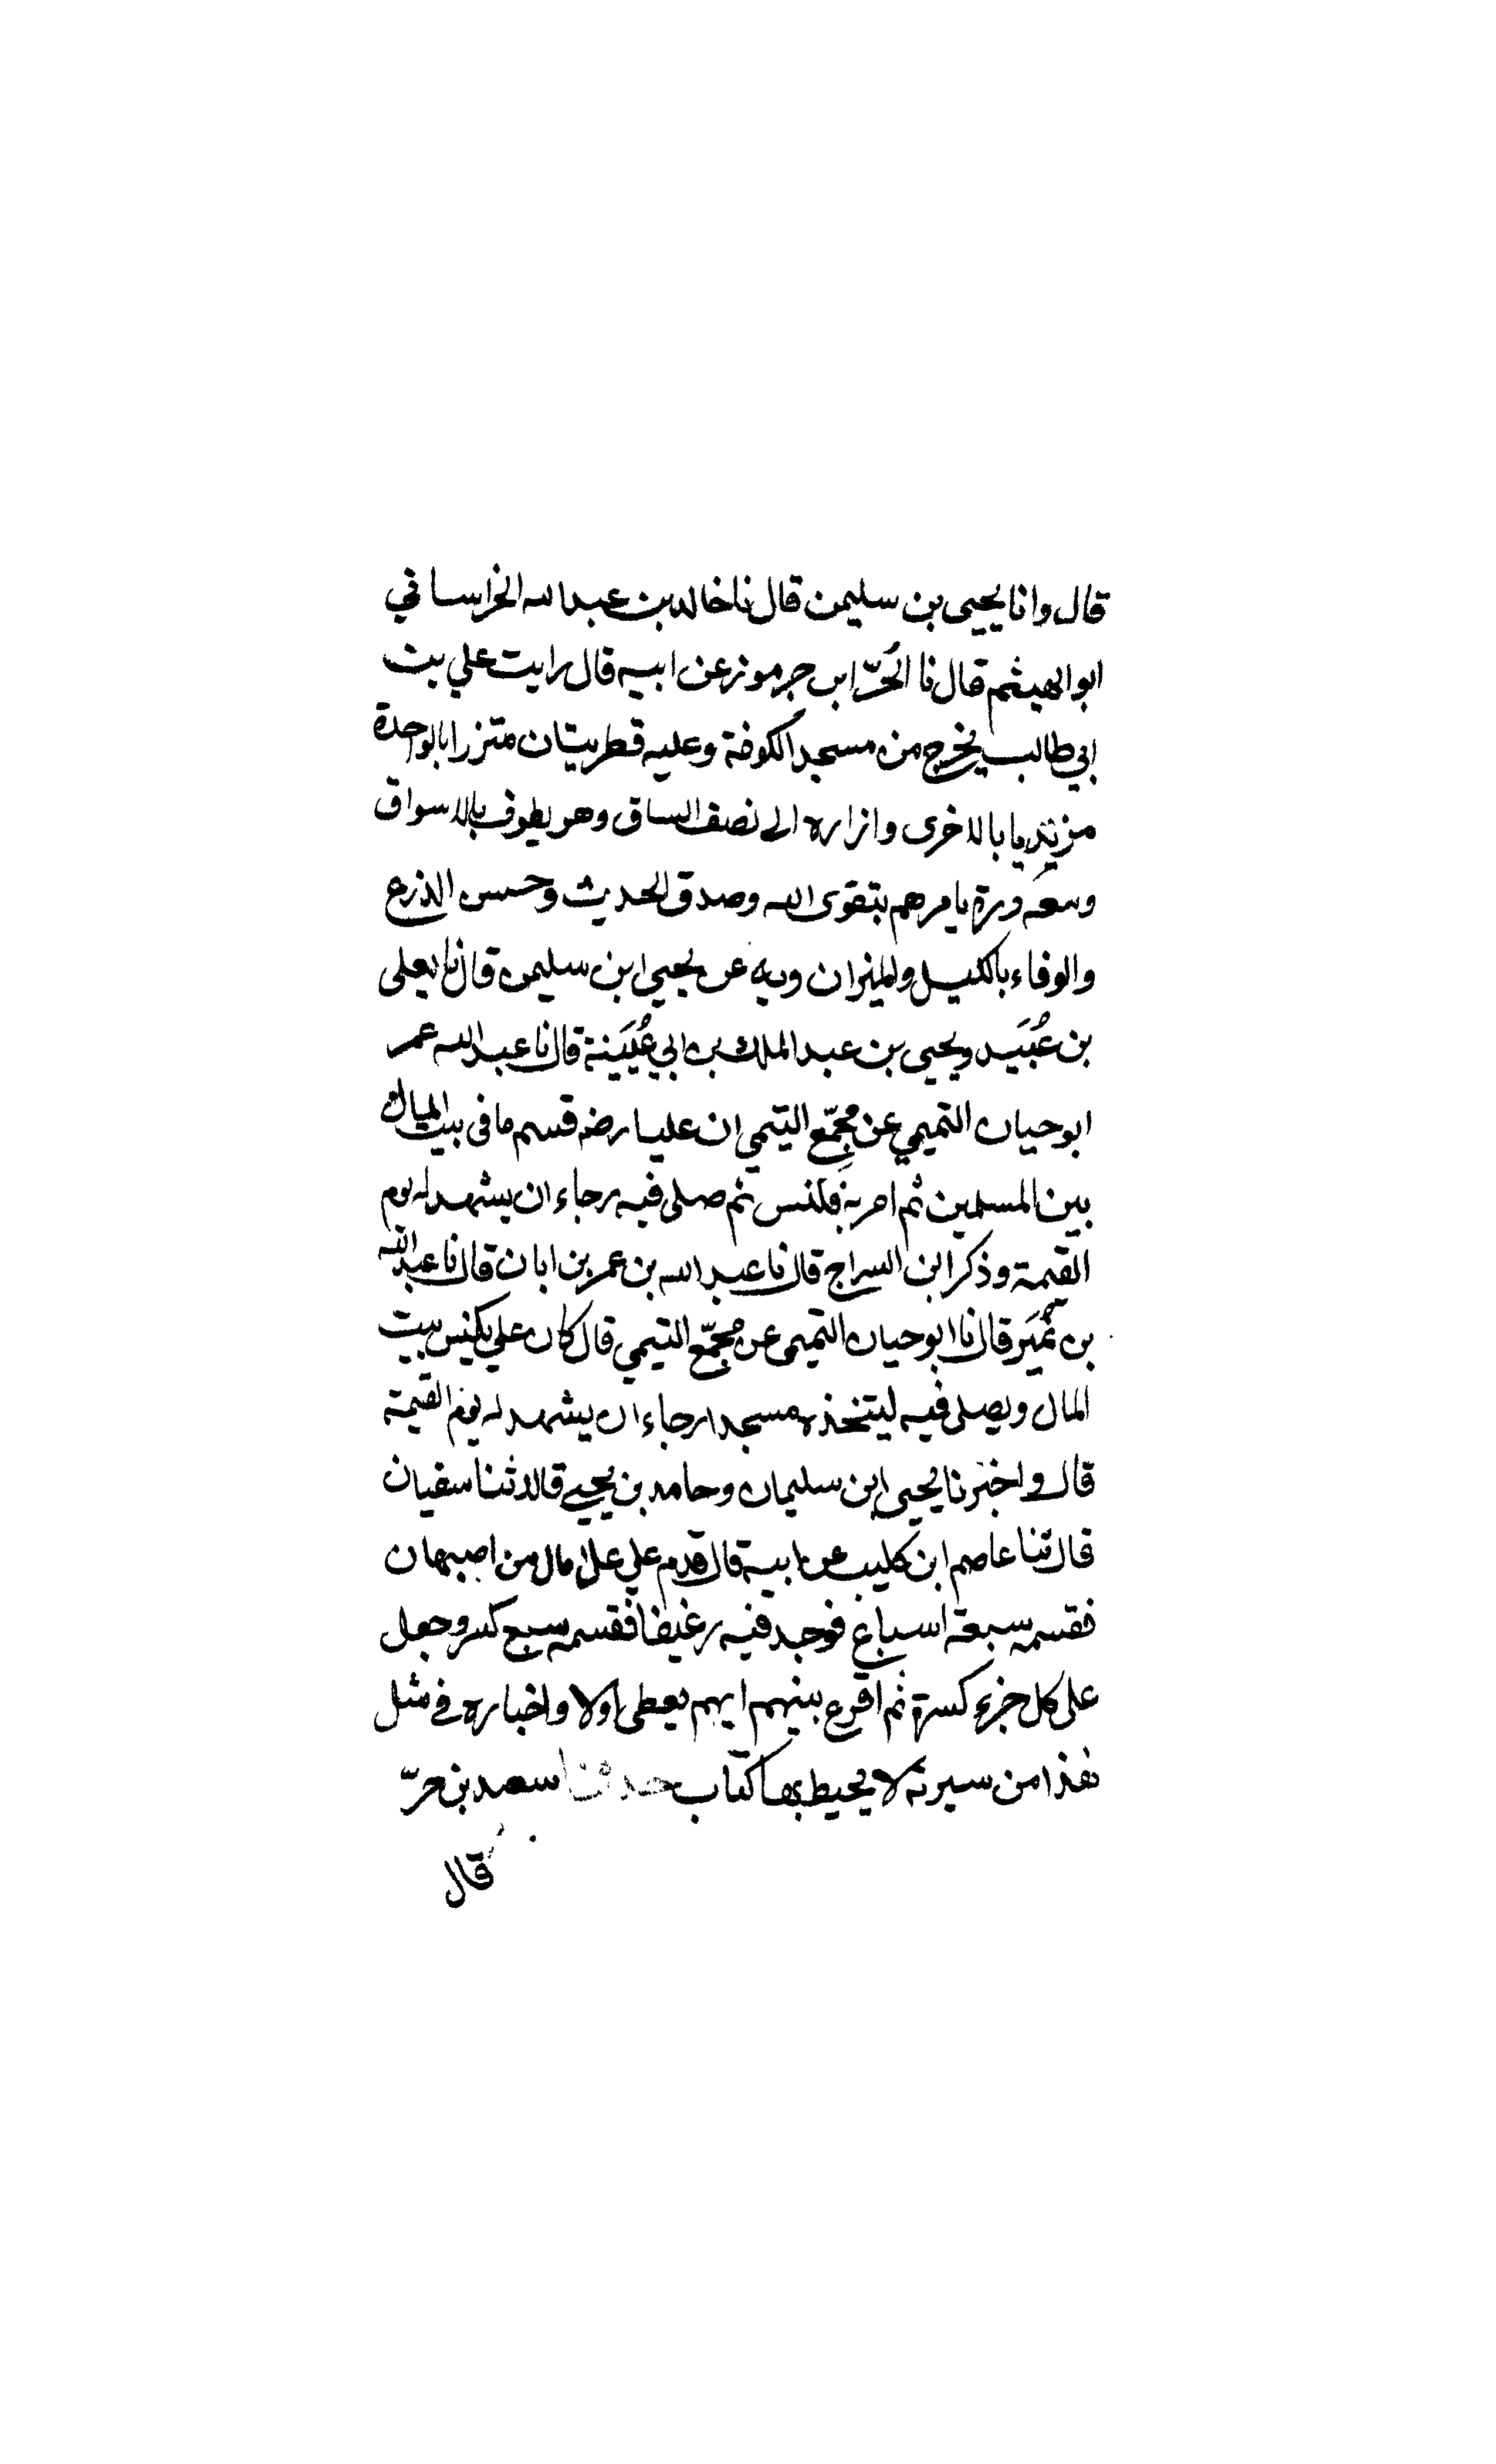 قال وانا يحيى بن سليمن قال نا خالد بن عبد الله الخراساني
ابو الهيثم قال نا الحُرّ ابن جرموز عن ابيه قال رايت علي بن
ابي طالب يخرج من مسجد الكوفة وعليه قطريتان متزرا بالواحدة
مرتديا بالاخرى وازاره الى نصف الساق وهو يطوف بالاسواق
ومعه درة يامرهم بتقوى الله وصدق الحديث وحسن الذرع
والوفاء بالكيل والميزان وبه عن يحيى ابن سليمن قال نا يعلى
بن عُبَيد ويحيى بن عبد الملك بن ابي عُيَينة قال نا عبد الله عمر
ابو حيان التميمي عن مجمّع التيمي ان عليا رضه قسم ما في بيت المال
بين المسلمين ثم امر به فكنس ثم صلى فيه رجاء ان يشهد له يوم
القيمة وذكر ابن السراج قال نا عبد الله بن عمر بن ابان قال نا عبد الله
بن نُمَير قال نا ابو حيان التميمى عن مجمّع التيمي قال كان علي يكنس بيت
المال ويصلى فيه ليتخذه مسجدا رجاء ان يشهد له يوم القيمة
قال واخبرنا يحيى ابن سليمان وحامد بن يحيى قالا ثنا سفيان
قال ثنا عاصم ابن كليب عن ابيه قال قدم علي على مال من اصبهان
فقسمه سبعة اسباع فوجد فيه رغيفا فقسمه سبع كسر وجعل
على كل جزء كسرة ثم اقرع بينهم ايهم يعطى اولا واخباره في مثل
هذا من سيرته لا يحيط بها كتاب حدثنا سعد بن حرّ
قال